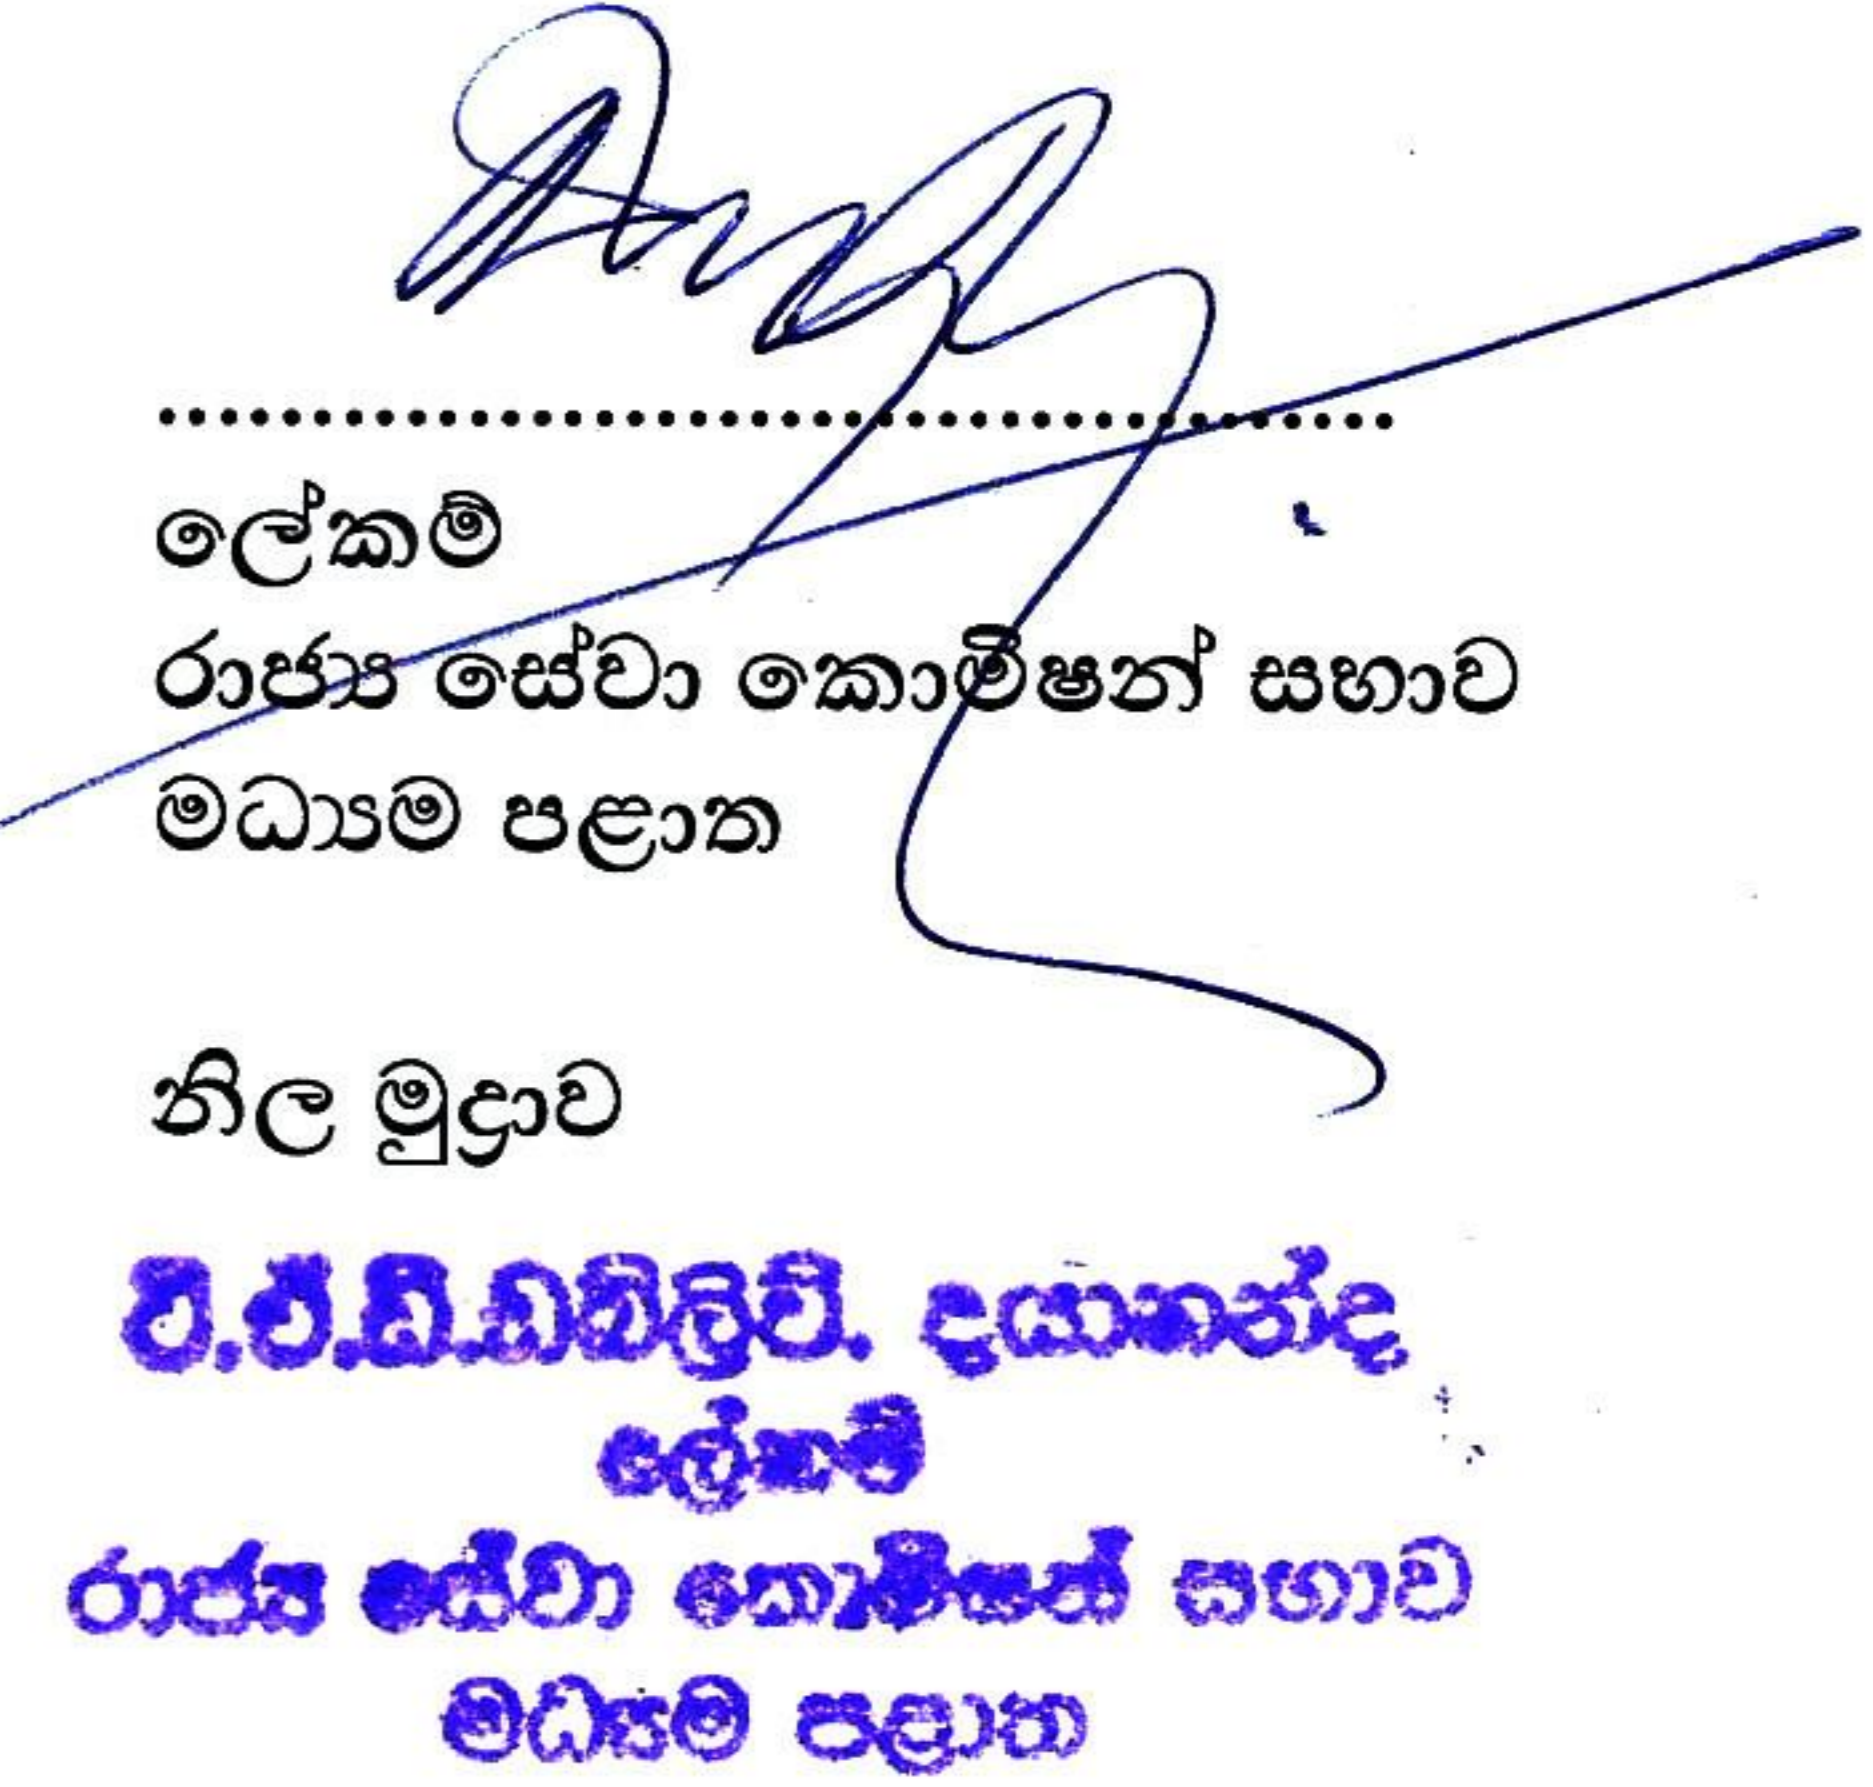 ........................................
ලේකම්
රාජ්‍ය සේවා කොමිෂන් සභාව
මධ්‍යම පළාත
නිල මුද්‍රාව
දයානන්ද
ලේකම්
රාජ්‍ය සේවා කොමිෂන් සභාව
මධ්‍යම පළාත